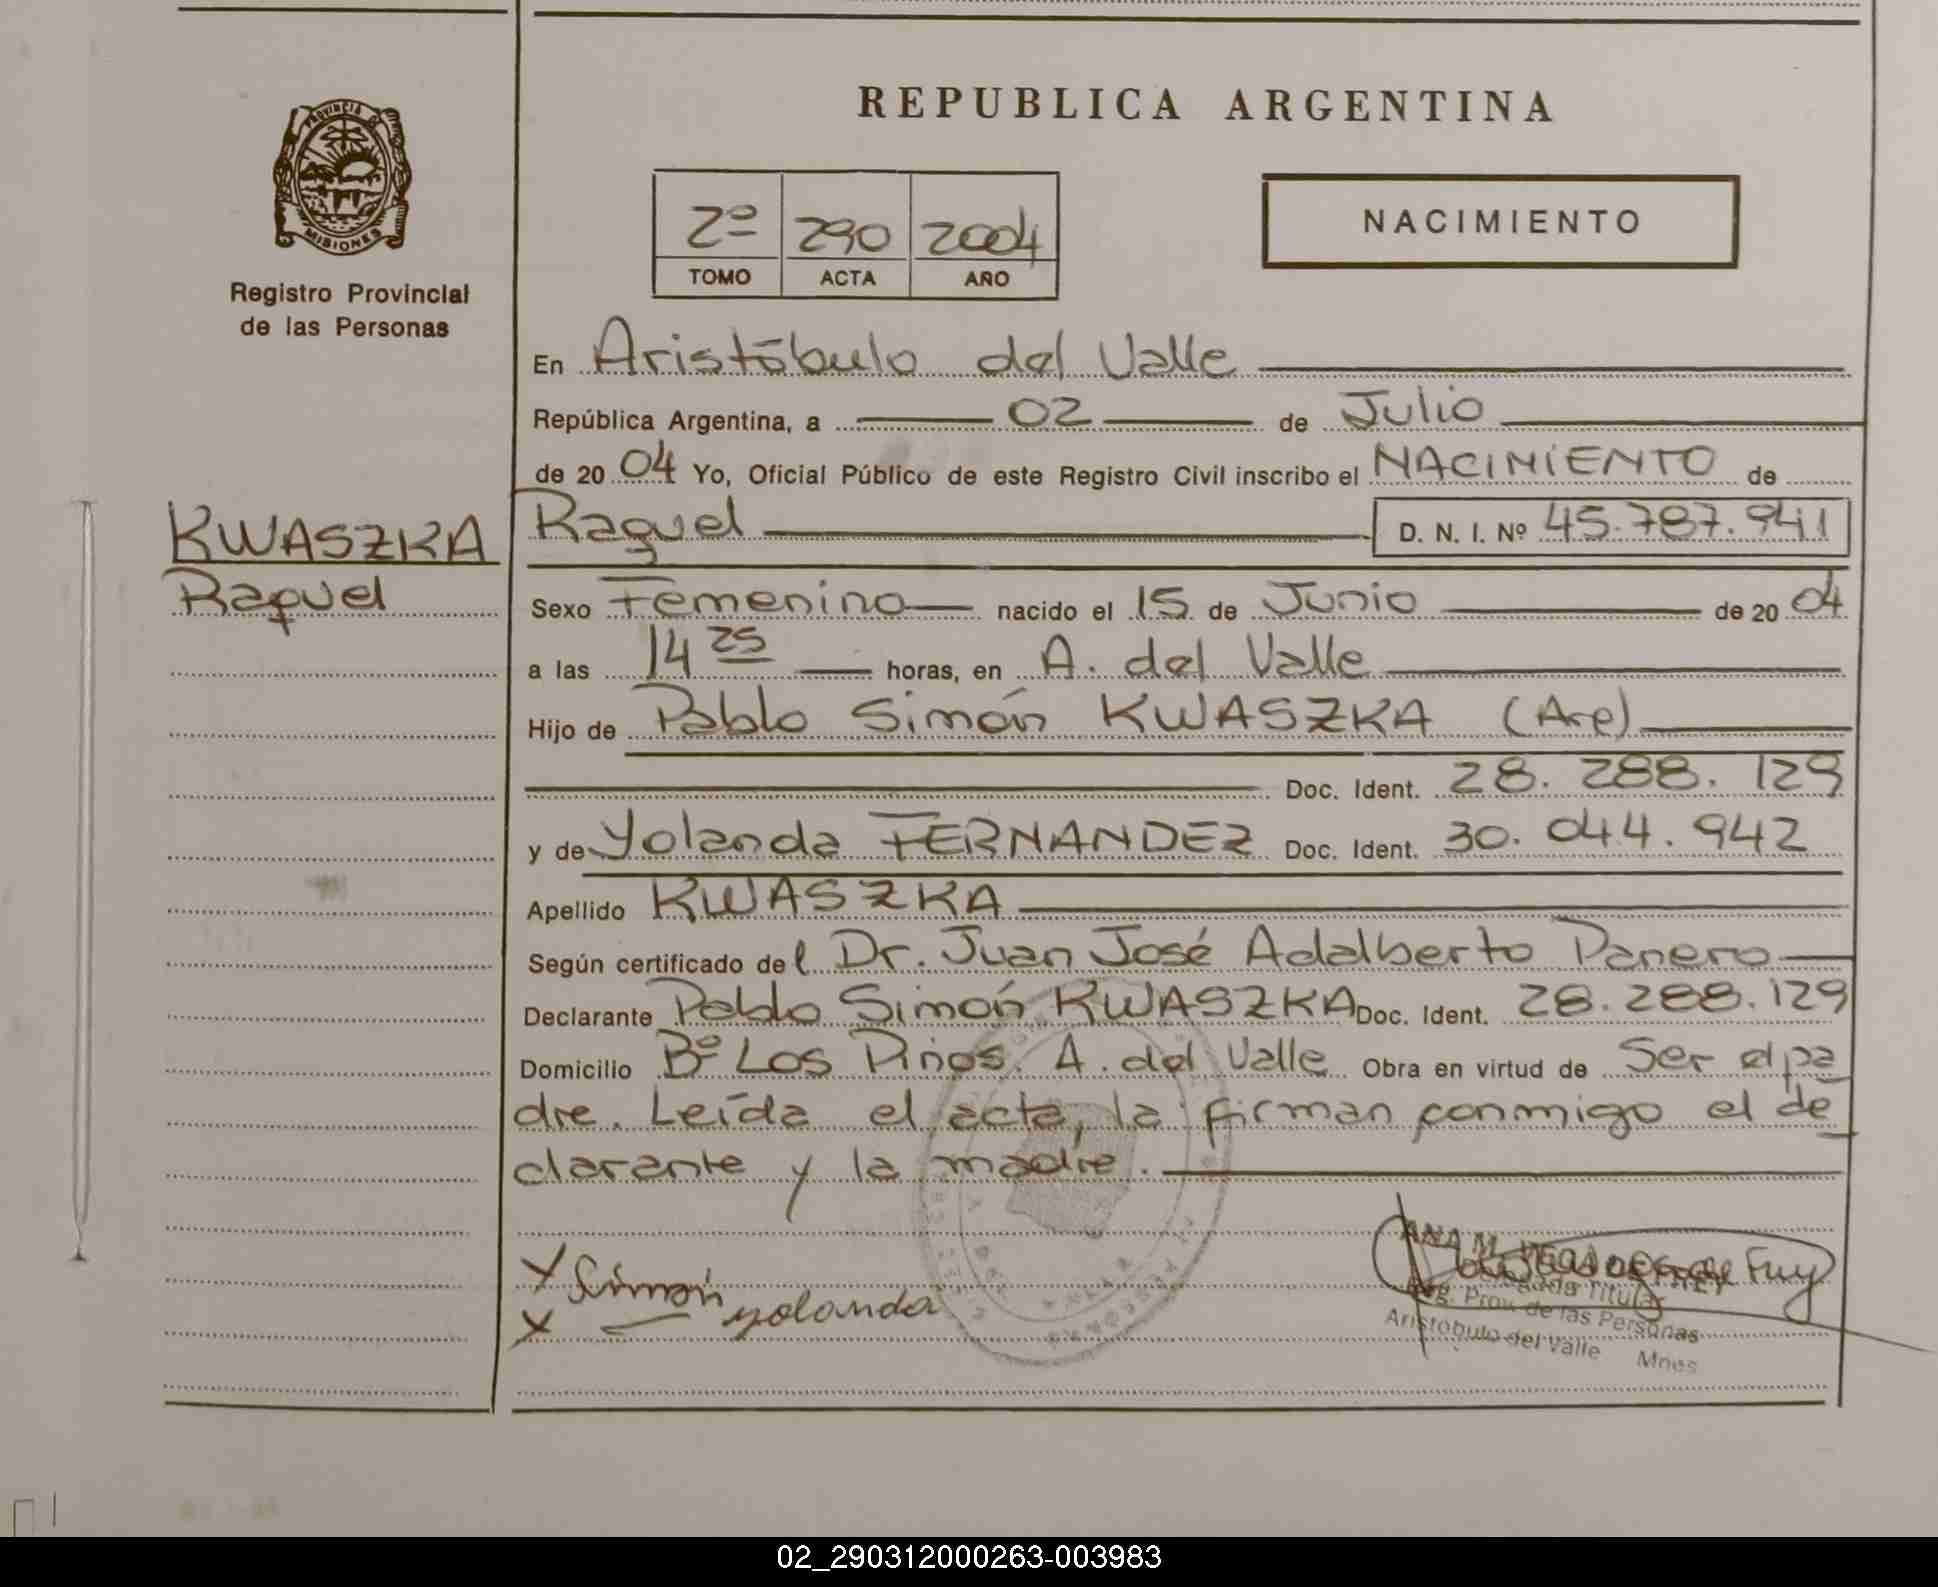 REPUBLICA ARGENTINA
PROVINCIA DE
MISIONES
Registro Provincial
de las Personas
2º 290 2004
TOMO ACTA AÑO
NACIMIENTO
En Aristóbulo del Valle
República Argentina, a 02 de Julio
de 2004 Yo, Oficial Público de este Registro Civil inscribo el NACIMIENTO de
KWASZKA
Raquel
Raquel D. N. I. Nº 45.787.941
Sexo Femenino nacido el 15 de Junio de 2004
a las 14 25 horas, en A. del Valle
Hijo de Pablo Simón KWASZKA (Arg)
Doc. Ident. 28.288.129
y de Yolanda FERNANDEZ Doc. Ident. 30.044.942
Apellido KWASZKA
Según certificado del Dr. Juan José Adalberto Panero
Declarante Pablo Simón KWASZKA Doc. Ident. 28.288.129
Domicilio Bº Los Pinos. A. del Valle Obra en virtud de Ser el pa
dre. Leída el acta, la firman conmigo el de
clarante y la madre.
X Simón
X yolanda
ANA M.
Titular
Reg. Prov. de las Personas
Aristobulo del Valle Mnes
02_290312000263-003983